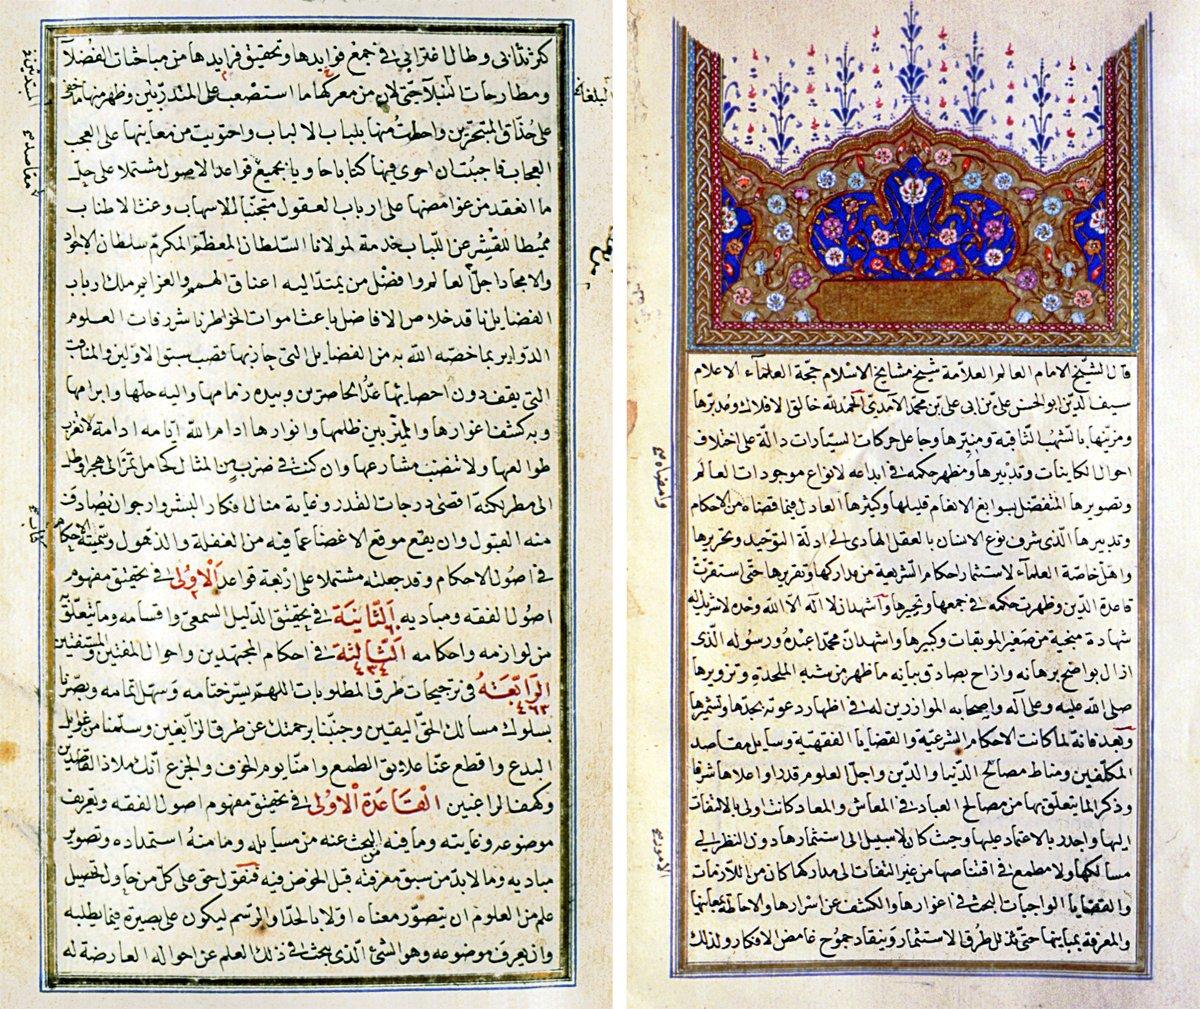 قال الشيخ الامام العالم العلامة شيخ مشايخ الاسلام حجة العلمآء الاعلام
سيف الدين ابو الحسن على بن ابى على بن محمد الآمدى الحمد لله خالق الافلاك ومدبرها
ومزينها بالشهب الثاقبة ومنيرها وجاعل حركات السيارات دالة على اختلاف
احوال الكاينات وتدبيرها ومظهر حكمه فى ابداعه لانواع موجودات العالم
وتصويرها المتفضل بسوابغ الانعام قليلها وكثيرها العادل فيما قضاه من الاحكام
وتدبيرها الذى شرف نوع الانسان بالعقل الهادى الى ادلة التوحيد وتحريرها
واهل خاصة العلمآء لاستثمار احكام الشريعة من مداركها وتقريرها حتى استقرت
قاعدة الدين وظهرت حكمه فى جمعها وتحبيرها واشهد ان لا اله الا الله وحده لا شريك له
شهادة منجية من صغير الموبقات وكبيرها واشهد ان محمدا عبده ورسوله الذى
ازال بواضح برهانه وازاح بصادق بيانه ما ظهر من شبه الملحدة وتزويرها
صلى الله عليه وعلى آله واصحابه الموازرين له فى اظهار دعوته بحدها وتشيرها
وبعد فانه لما كانت الاحكام الشرعية والقضايا الفقهية وسايل مقاصد
المكلفين ومناط مصالح الدنيا والدين واجل العلوم قدرا واعلاها شرفا
وذكرا لما يتعلق بها من مصالح العباد فى المعاش والمعاد كانت اولى بالالتفات
اليها واجدر بالاعتماد عليها وحيث كان لا سبيل الى استثمارها دون النظر فى
مسالكها ولا مطمع فى اقتناصها من غير التفات الى مداركها كان من اللازمات
والقضايا الواجبات البحث فى اغوارها والكشف عن اسرارها والاحاطة بمعانيها
والمعرفة بمبانيها حتى تذلل طرق الاستثمار وينقاد جموح غامض الافكار ولذلك
وامضاه
الامور
كثر تدآبى وطال اغترابى فى جمع فوايدها وتحقيق فرايدها من مباحثات الفضلآ
ومطارحات النبلآ حتى لان من معركها ما استصعب على المتدربين وظهر منها ما خفى
على حذاق المتبحرين واحطت منها بلباب الالباب واحتويت من معانيها على العجب
العجاب فاحببت ان احوى فيها كتابا حاويا بجميع قواعد الاصول مشتملا على حل
ما انعقد من غوامضها على ارباب العقول متجنبا للاسهاب وغث الاطناب
مميطا للقشر عن اللباب خدمة لمولانا السلطان المعظم المكرم سلطان الاجواد
والامجاد اجل العالم وافضل من يمتد اليه اعناق الهمم والعزايم ملك ارباب
الفضايل ناقد خلاص الافاضل باعث اموات الخواطر ناشر رفات العلوم
الدواير بما خصه الله به من الفضايل التى حاز بها قصب سبق الاولين والمناقب
التى يقف دون احصايها عد الحاصرين وبيده زمامها واليه حلها وابرامها
وبه كشف اغوارها والميز بين ظلمها وانوارها ادام الله ايامه ادامة لا تغرب
طوالعها ولا تنضب مشارعها وان كنت فى ضرب من المثال كحامل تمر الى هجر وطل
الى مطر لكنه اقصى درجات القدر وغاية منال فكار البشر وارجو ان يصادف
منه القبول وان يقع موقع الاغضا عما فيه من الغفلة والذهول وسميته الاحكام
فى اصول الاحكام وقد جعلته مشتملا على اربعة قواعد الاولى فى تحقيق مفهوم
اصول الفقه ومباديه الثانية فى تحقيق الدليل السمعى واقسامه وما يتعلق به
من لوازمه واحكامه الثالثة فى احكام المجتهدين واحوال المفتين والمستفتين
الرابعة فى ترجيحات طرق المطلوبات اللهم يسر ختامه وسهل اتمامه وبصرنا
بسلوك مسالك الحق اليقين وجنبنا برحمتك عن طرق الزايغين وسلمنا من غوايل
البدع واقطع عنا علايق الطمع وامنا يوم الخوف والجزع انك ملاذ القاصدين
وكهف الراغبين القاعدة الاولى فى تحقيق مفهوم اصول الفقه وتعريف
موضوعه وغايته وما فيه البحث عنه من مسايله وما منه استمداده وتصوير
مباديه وما لا بد من سبق معرفته قبل الخوض فيه فنقول حق على كل من حاول تحصيل
علم من العلوم ان يتصور معناه اولا بالحد او الرسم ليكون على بصيرة فيما يطلبه
وان يعرف موضوعه وهو الشئ الذى يبحث فى ذلك العلم عن احواله العارضة له
٤٣٤
٤٦٣
مقاصد
كتاب